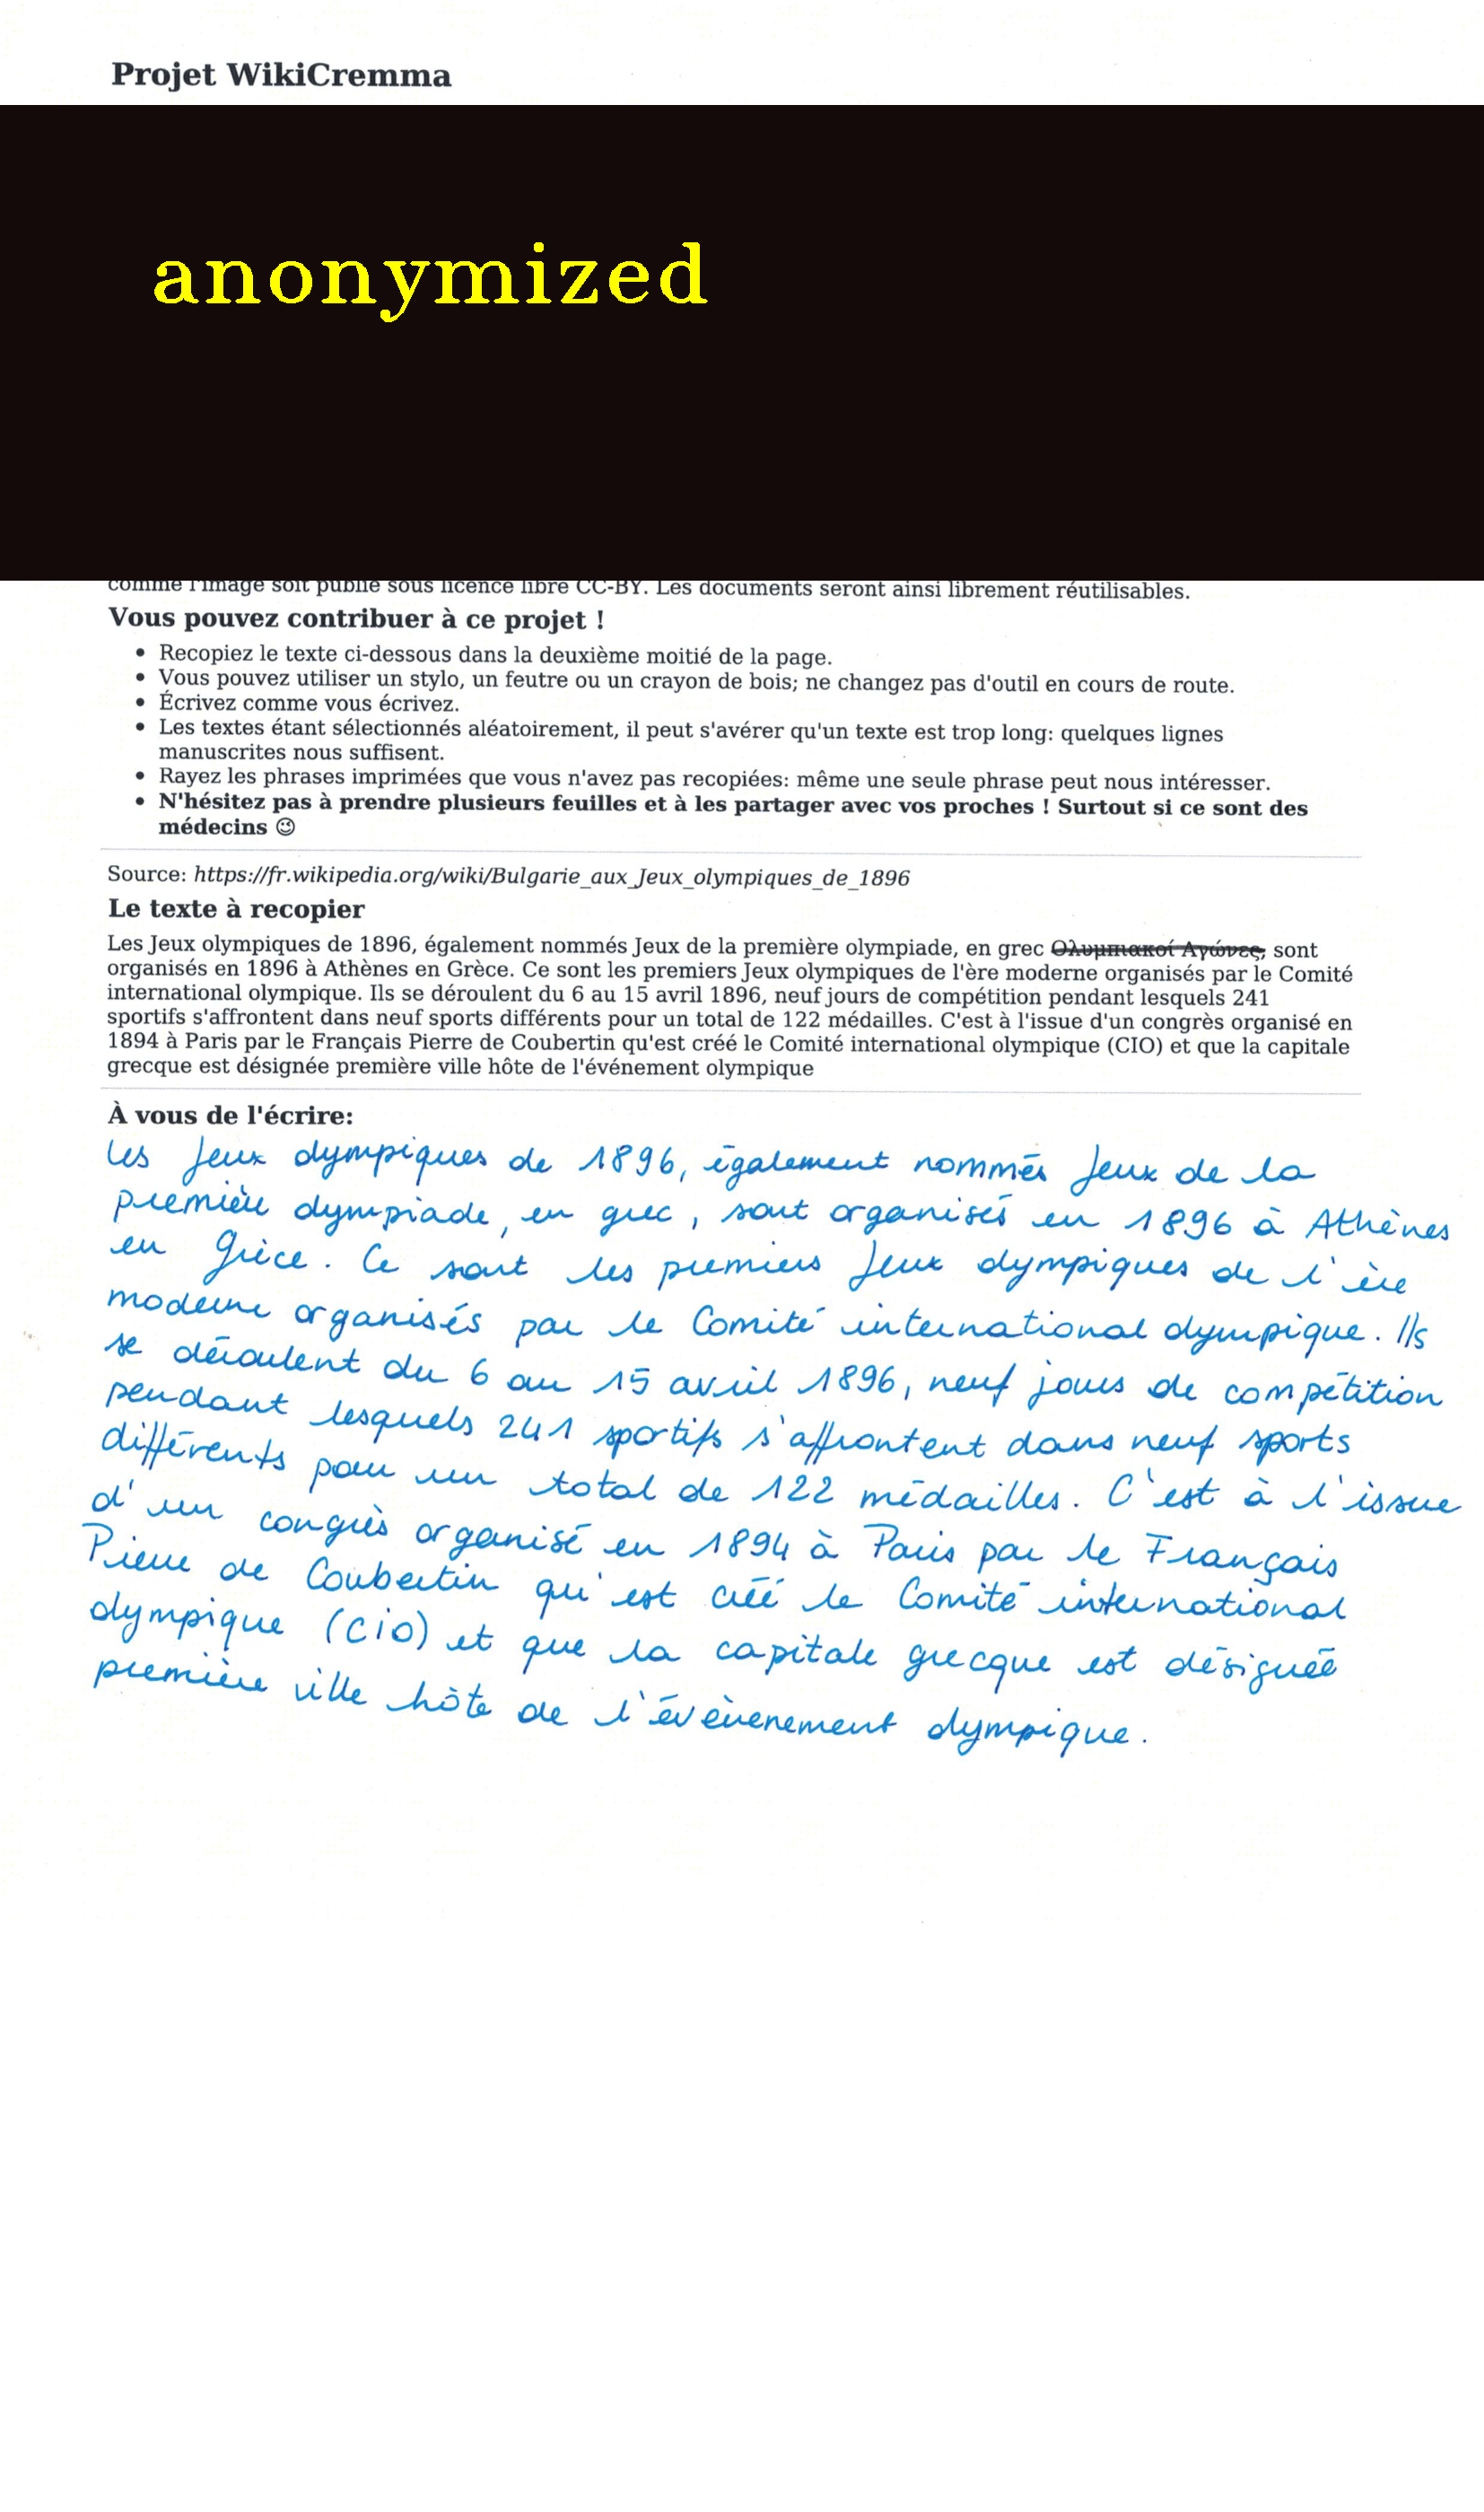 Projet WikiCremma
anonymized
comme l'image soit publié sous licence libre CC-BY. Les documents seront ainsi librement réutilisables.
Vous pouvez contribuer à ce projet !
• Recopiez le texte ci-dessous dans la deuxième moitié de la page.
• Vous pouvez utiliser un stylo, un feutre ou un crayon de bois; ne changez pas d'outil en cours de route.
• Écrivez comme vous écrivez.
• Les textes étant sélectionnés aléatoirement, il peut s'avérer qu'un texte est trop long: quelques lignes
manuscrites nous suffisent.
• Rayez les phrases imprimées que vous n'avez pas recopiées: même une seule phrase peut nous intéresser.
• N'hésitez pas à prendre plusieurs feuilles et à les partager avec vos proches ! Surtout si ce sont des
médecins 😉
Source: https://fr.wikipedia.org/wiki/Bulgarie_aux_Jeux_olympiques_de_1896
Le texte à recopier
Les Jeux olympiques de 1896, également nommés Jeux de la première olympiade, en grec Ολυμπιακοί Αγώνες, sont
organisés en 1896 à Athènes en Grèce. Ce sont les premiers Jeux olympiques de l'ère moderne organisés par le Comité
international olympique. Ils se déroulent du 6 au 15 avril 1896, neuf jours de compétition pendant lesquels 241
sportifs s'affrontent dans neuf sports différents pour un total de 122 médailles. C'est à l'issue d'un congrès organisé en
1894 à Paris par le Français Pierre de Coubertin qu'est créé le Comité international olympique (CIO) et que la capitale
grecque est désignée première ville hôte de l'événement olympique
À vous de l'écrire:
Les Jeux olympiques de 1896, également nommés Jeux de la
première olympiade, en grec, sont organisés en 1896 à Athènes
en Grèce. Ce sont les premiers Jeux olympiques de l'ère
moderne organisés par le Comité international olympique. Ils
se déroulent du 6 au 15 avril 1896, neuf jours de compétition
pendant lesquels 241 sportifs s'affrontent dans neuf sports
différents pour un total de 122 médailles. C'est à l'issue
d'un congrès organisé en 1894 à Paris par le Français
Pierre de Coubertin qu'est créé le Comité international
olympique (CIO) et que la capitale grecque est désignée
première ville hôte de l'évèvenement olympique.